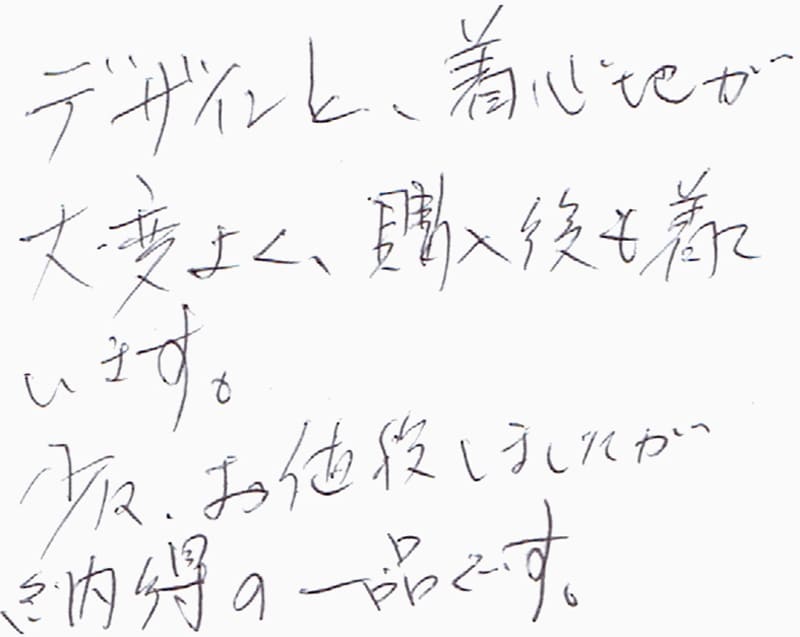 デザインと、着心地が
大変よく、購入後も着て
います。
少々、お値段しましたが
納得の一品です。